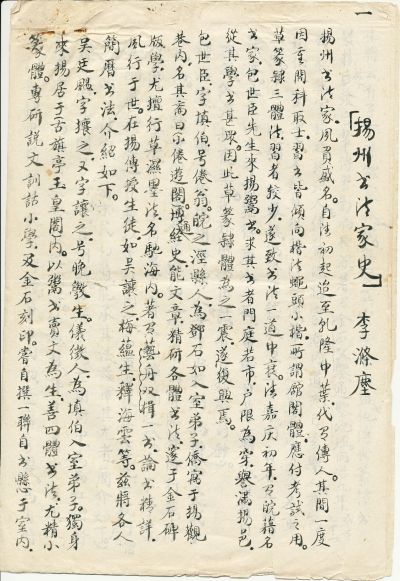 一
「揚州书法家史」 李滌塵
揚州书法家，夙負盛名。自清初起迨至乹隆中葉，代有傳人。其間一度
因重開科取士，習书皆傾向楷法，蠅頭小楷，所謂館閣體應付考試之用。
草篆隸三體法習者較少，遂致书法一道中衰。嘉庆初年，有皖籍名
书家包世臣先生來揚鬻书，求其书者門庭若市，户限為穿，譽滿揚邑，
從其學书甚眾，因此草篆隸體為之一震，遂復興焉。
包世臣，字慎伯，号倦翁。皖之涇縣人，為鄧石如入室弟子，僑寓于揚觀
巷内，名其斋曰小倦遊閣。博通經史能文章，精研各體书法，邃于金石碑
版學，尤擅行草濕墨法，名馳海内。著有藝舟双楫一书，論书精詳，
風行于世。在揚傳授生徒如吳讓之梅蘊生釋海雲等。兹將各人
簡曆书法介紹如下。
吳廷颺，字攘之，又字讓之，号晚學生。儀徵人，為慎伯入室弟子。獨身
來揚居于古旗亭玉皇閣内，以鬻书賣文為生，善四體书法，尤精小
篆體。專研説文訓詁小學及金石刻印。嘗自撰一聯自书懸于室内，